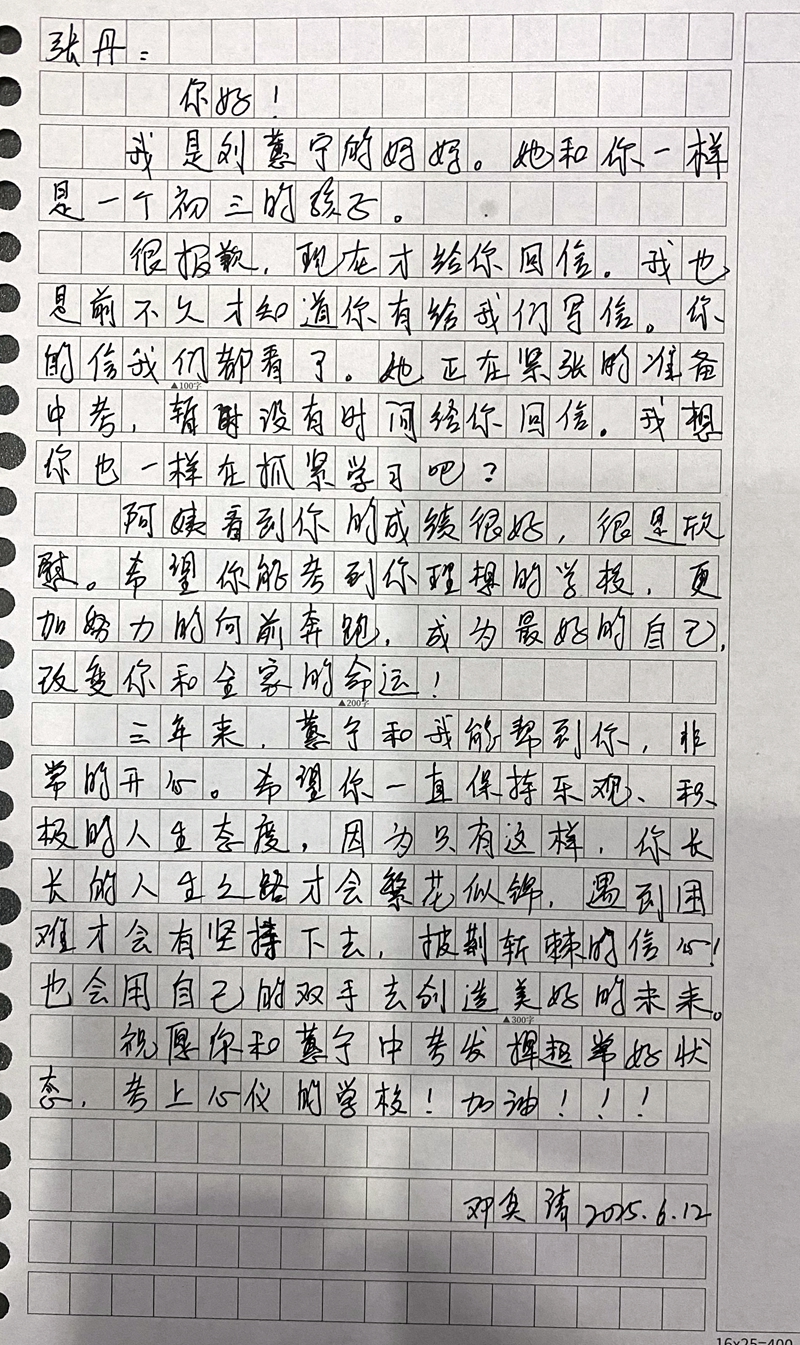 张丹：
你好！
我是刘蕙宁的妈妈。她和你一样
是一个初三的孩子。
很报歉，现在才给你回信。我也
是前不久才知道你有给我们写信。你
的信我们都看了。她正在紧张的准备
▲100字
中考，暂时没有时间给你回信。我想
你也一样在抓紧学习吧？
阿姨看到你的成绩很好，很是欣
慰。希望你能考到你理想的学校，更
加努力的向前奔跑，成为最好的自己，
改变你和全家的命运！
▲200字
三年来，蕙宁和我能帮到你，非
常的开心。希望你一直保持乐观、积
极的人生态度，因为只有这样，你长
长的人生之路才会繁花似锦，遇到困
难才会有坚持下去，披荆斩棘的信心！
也会用自己的双手去创造美好的未来。
▲300字
祝愿你和蕙宁中考发挥超常好状
态，考上心仪的学校！加油！！！
邓 清 2025.6.12
16x25=400